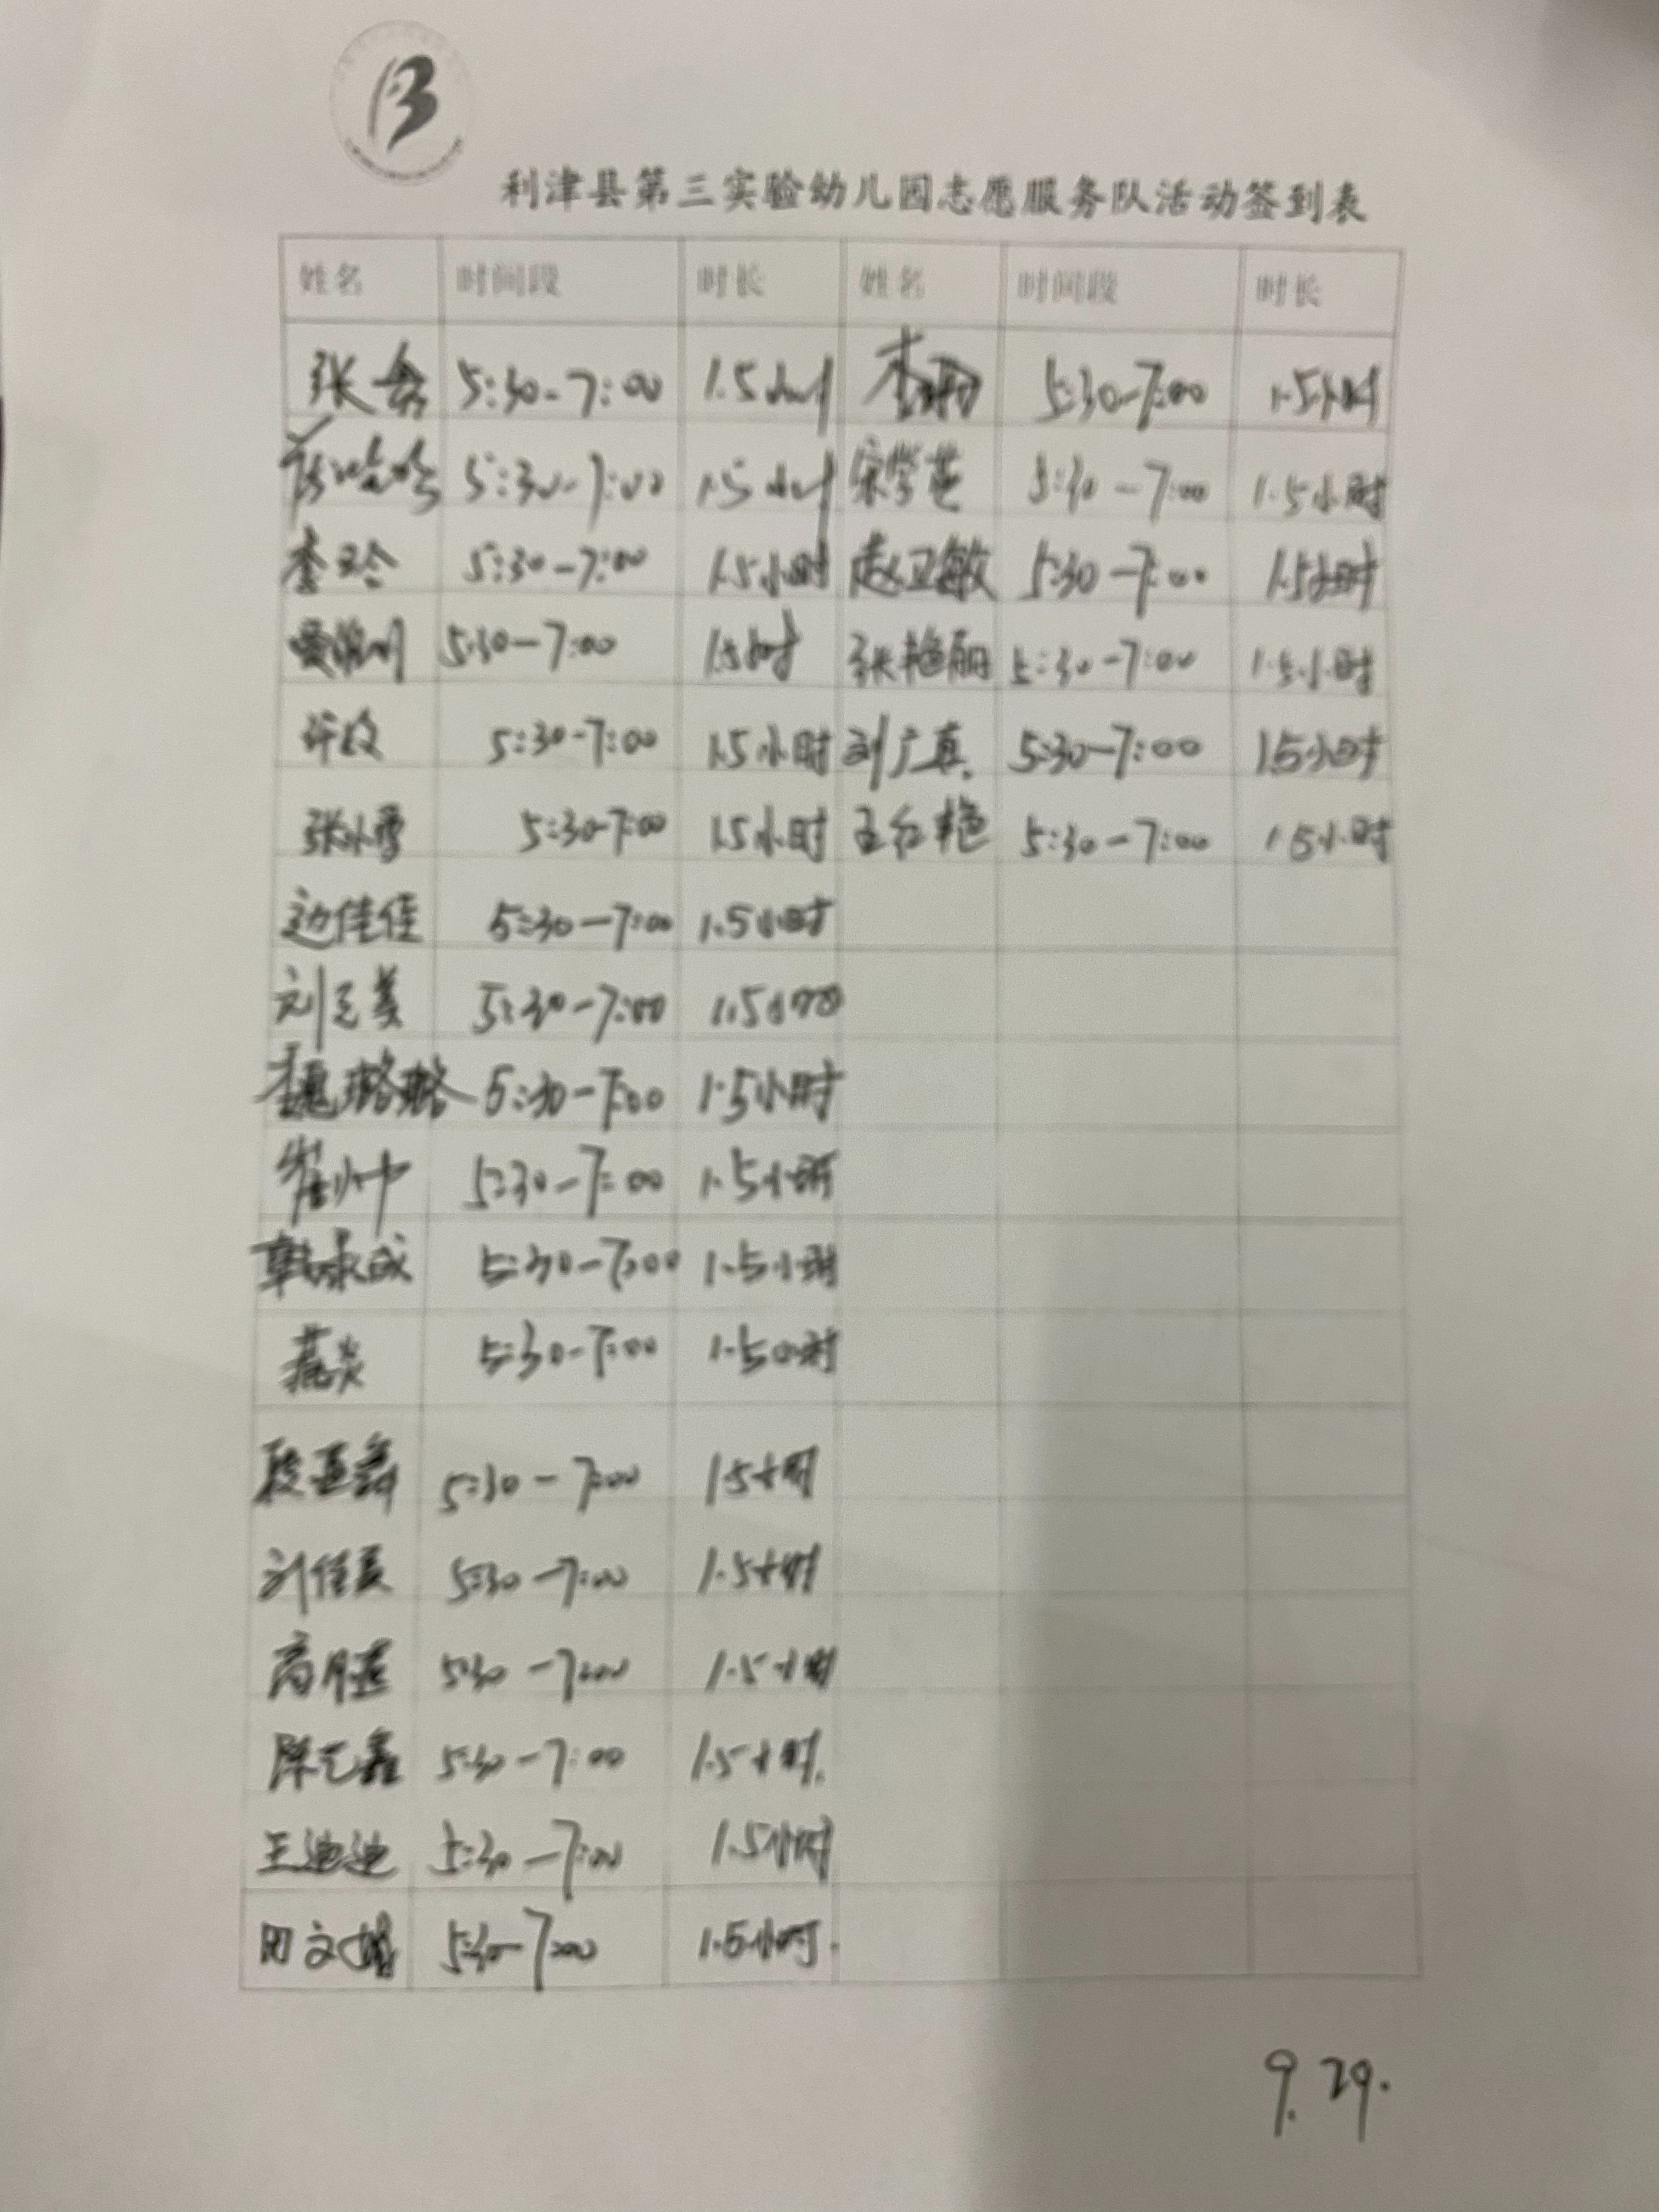 利津县第三实验幼儿园志愿服务队活动签到表
姓名 时间段 时长 姓名 时间段 时长
张 5:30-7:00 1.5小时 李 5:30-7:00 1.5小时
5:30-7:00 1.5小时 宋学莲 5:30-7:00 1.5小时
李玲 5:30-7:00 1.5小时 赵卫敏 5:30-7:00 1.5小时
5:30-7:00 1.5小时 张艳丽 5:30-7:00 1.5小时
许 5:30-7:00 1.5小时 刘广真. 5:30-7:00 1.5小时
张小雪 5:30-7:00 1.5小时 王红艳 5:30-7:00 1.5小时
边佳佳 5:30-7:00 1.5小时
刘 美 5:30-7:00 1.5小时
魏璐璐 5:30-7:00 1.5小时
崔帅中 5:30-7:00 1.5小时
韩 成 5:30-7:00 1.5小时
炎 5:30-7:00 1.5小时
段亚 5:30-7:00 1.5小时
刘佳 5:30-7:00 1.5小时
高 5:30-7:00 1.5小时
陈艺鑫 5:30-7:00 1.5小时.
王迪迪 5:30-7:00 1.5小时
田文娟 5:30-7:00 1.5小时.
9.29.